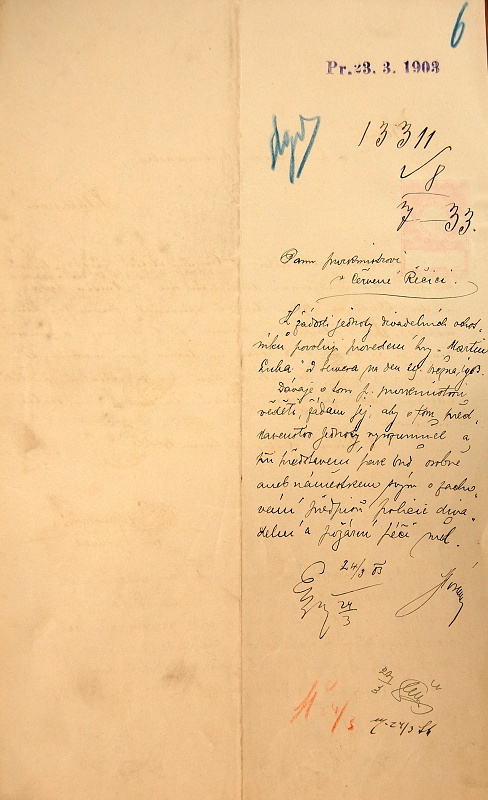 6
Pr. 23. 3. 1903
13311
8
7 33.
Panu purkmistrovi
v Červené Řečici.
K žádosti jednoty divadelních ochot-
níků povoluji provedení hry „Martin
Luba" na den 29. března 1903.
Dávaje o tom p. purkmistrovi
věděti, žádám jej, aby o tom před-
stavenstvo jednoty vyrozuměl a
při představení pak buď osobně
aneb náměstkem svým o zacho-
vání předpisů policie diva-
delní a požární péči měl.
24/3 03
24
3
24/3
24/3